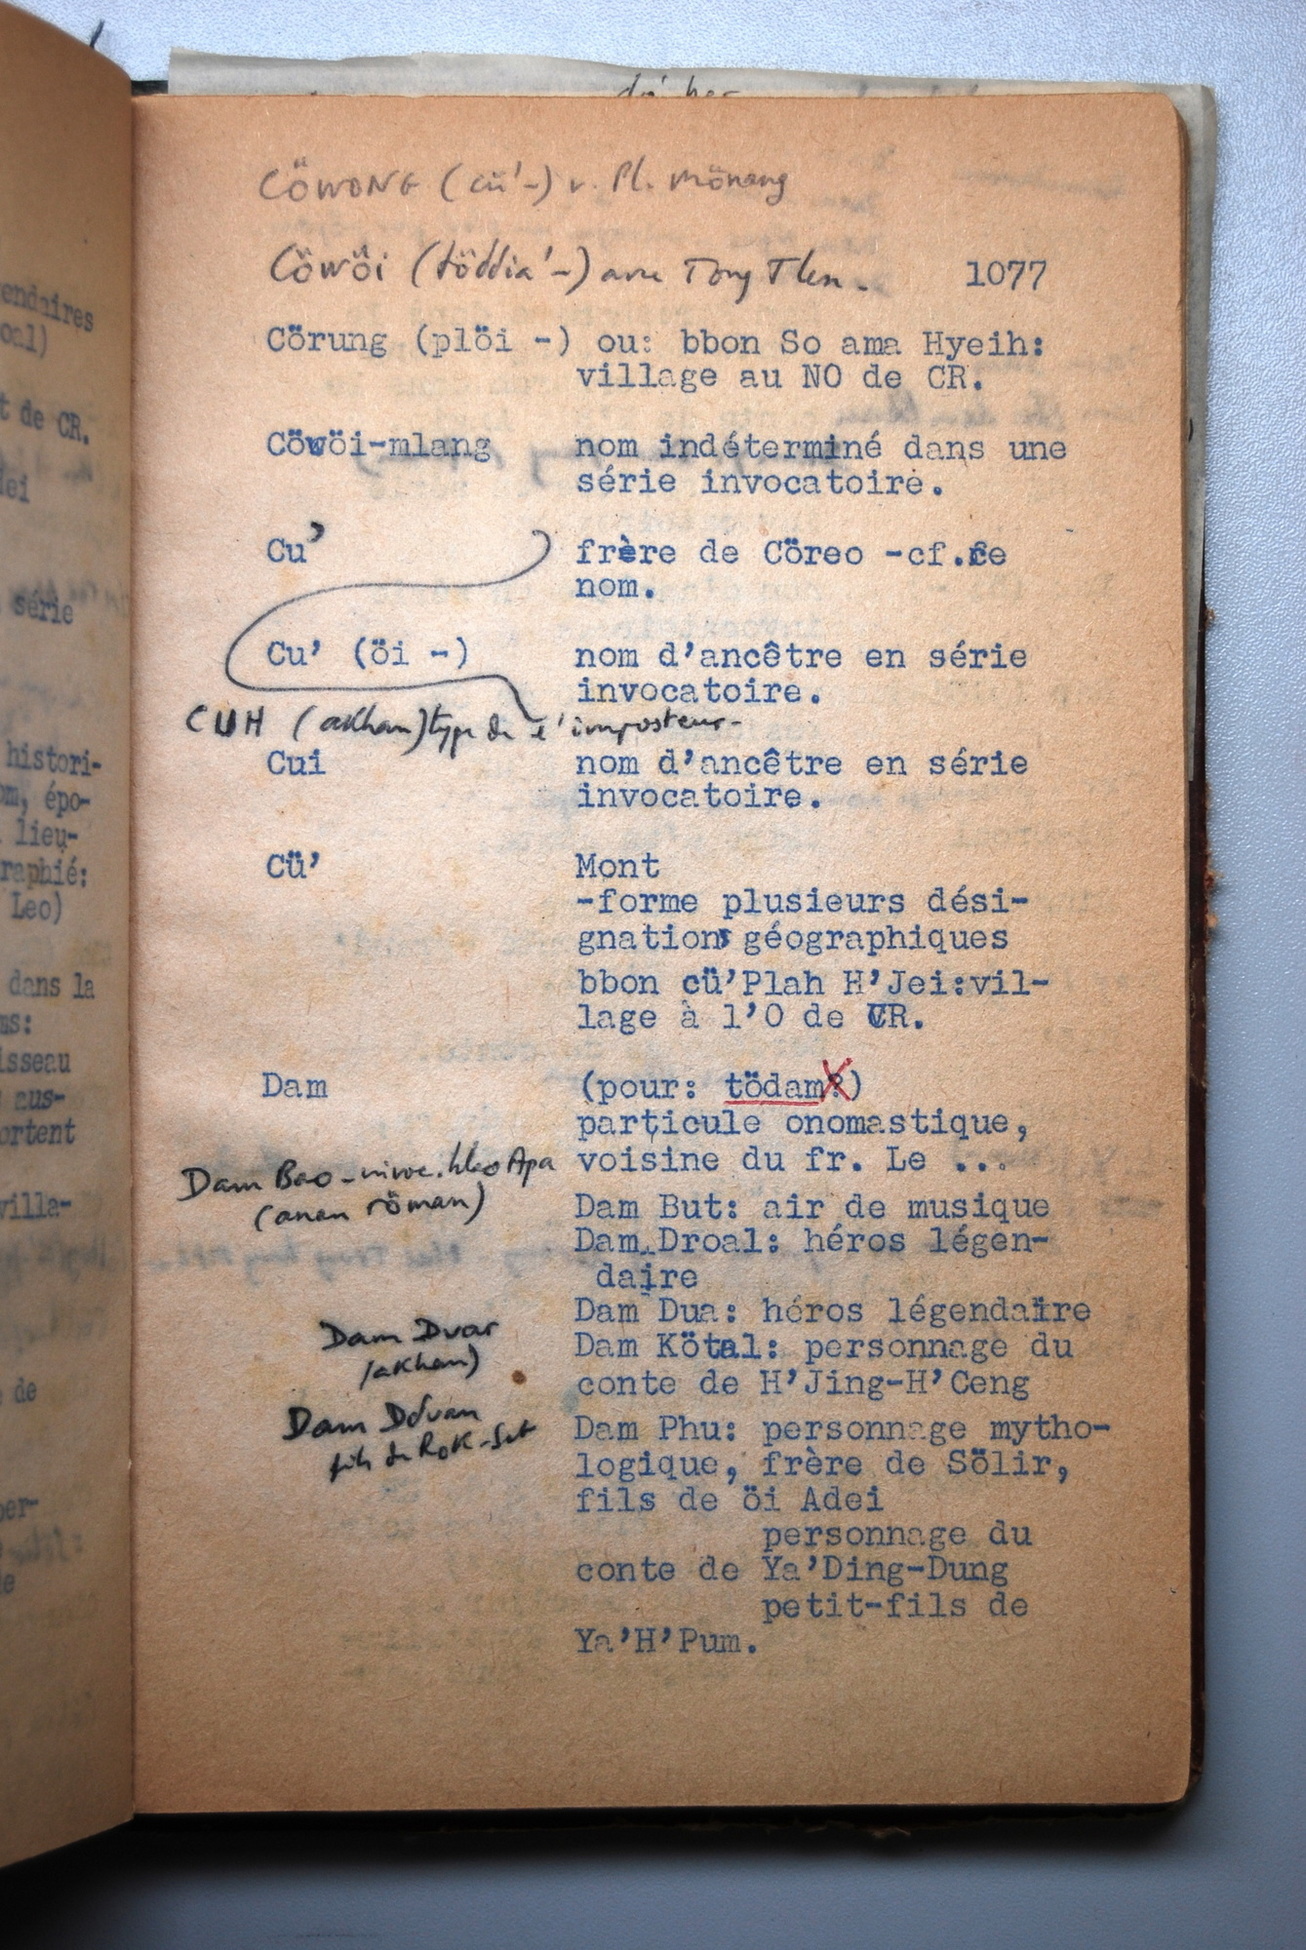 CÖWONG (cü'-) v. Pl. Mönang
Cöwöi (töddia'-) avec Tong Tlen.
1077
Cörung (plöi -) ou: bbon So ama Hyeih:
village au NO de CR.
Cöwöi-mlang nom indéterminé dans une
série invocatoire.
Cu' frère de Cöreo -cf.ce
nom.
Cu' (öi -) nom d'ancêtre en série
invocatoire.
CUH (akhan) type de l'imposteur-
Cui nom d'ancêtre en série
invocatoire.
Cü' Mont
-forme plusieurs dési-
gnations géographiques
bbon cü'Plah H'Jei:vil-
lage à l'O de CR.
Dam (pour: tödam?)
particule onomastique,
voisine du fr. Le ...
Dam Bao - invoc. Apa
(anan röman)
Dam But: air de musique
Dam Droal: héros légen-
daire
Dam Dua: héros légendaire
Dam Duar
(akhan)
Dam Kötal: personnage du
conte de H'Jing-H'Ceng
Dam Döuan
fils de RoK-Set
Dam Phu: personnage mytho-
logique, frère de Sölir,
fils de öi Adei
personnage du
conte de Ya'Ding-Dung
petit-fils de
Ya'H'Pum.
endaires
oal)
t de CR.
dei
série
histori-
om, épo-
lieu-
raphié:
Leo)
dans la
ms:
isseau
aus-
ortent
villa-
de
per-